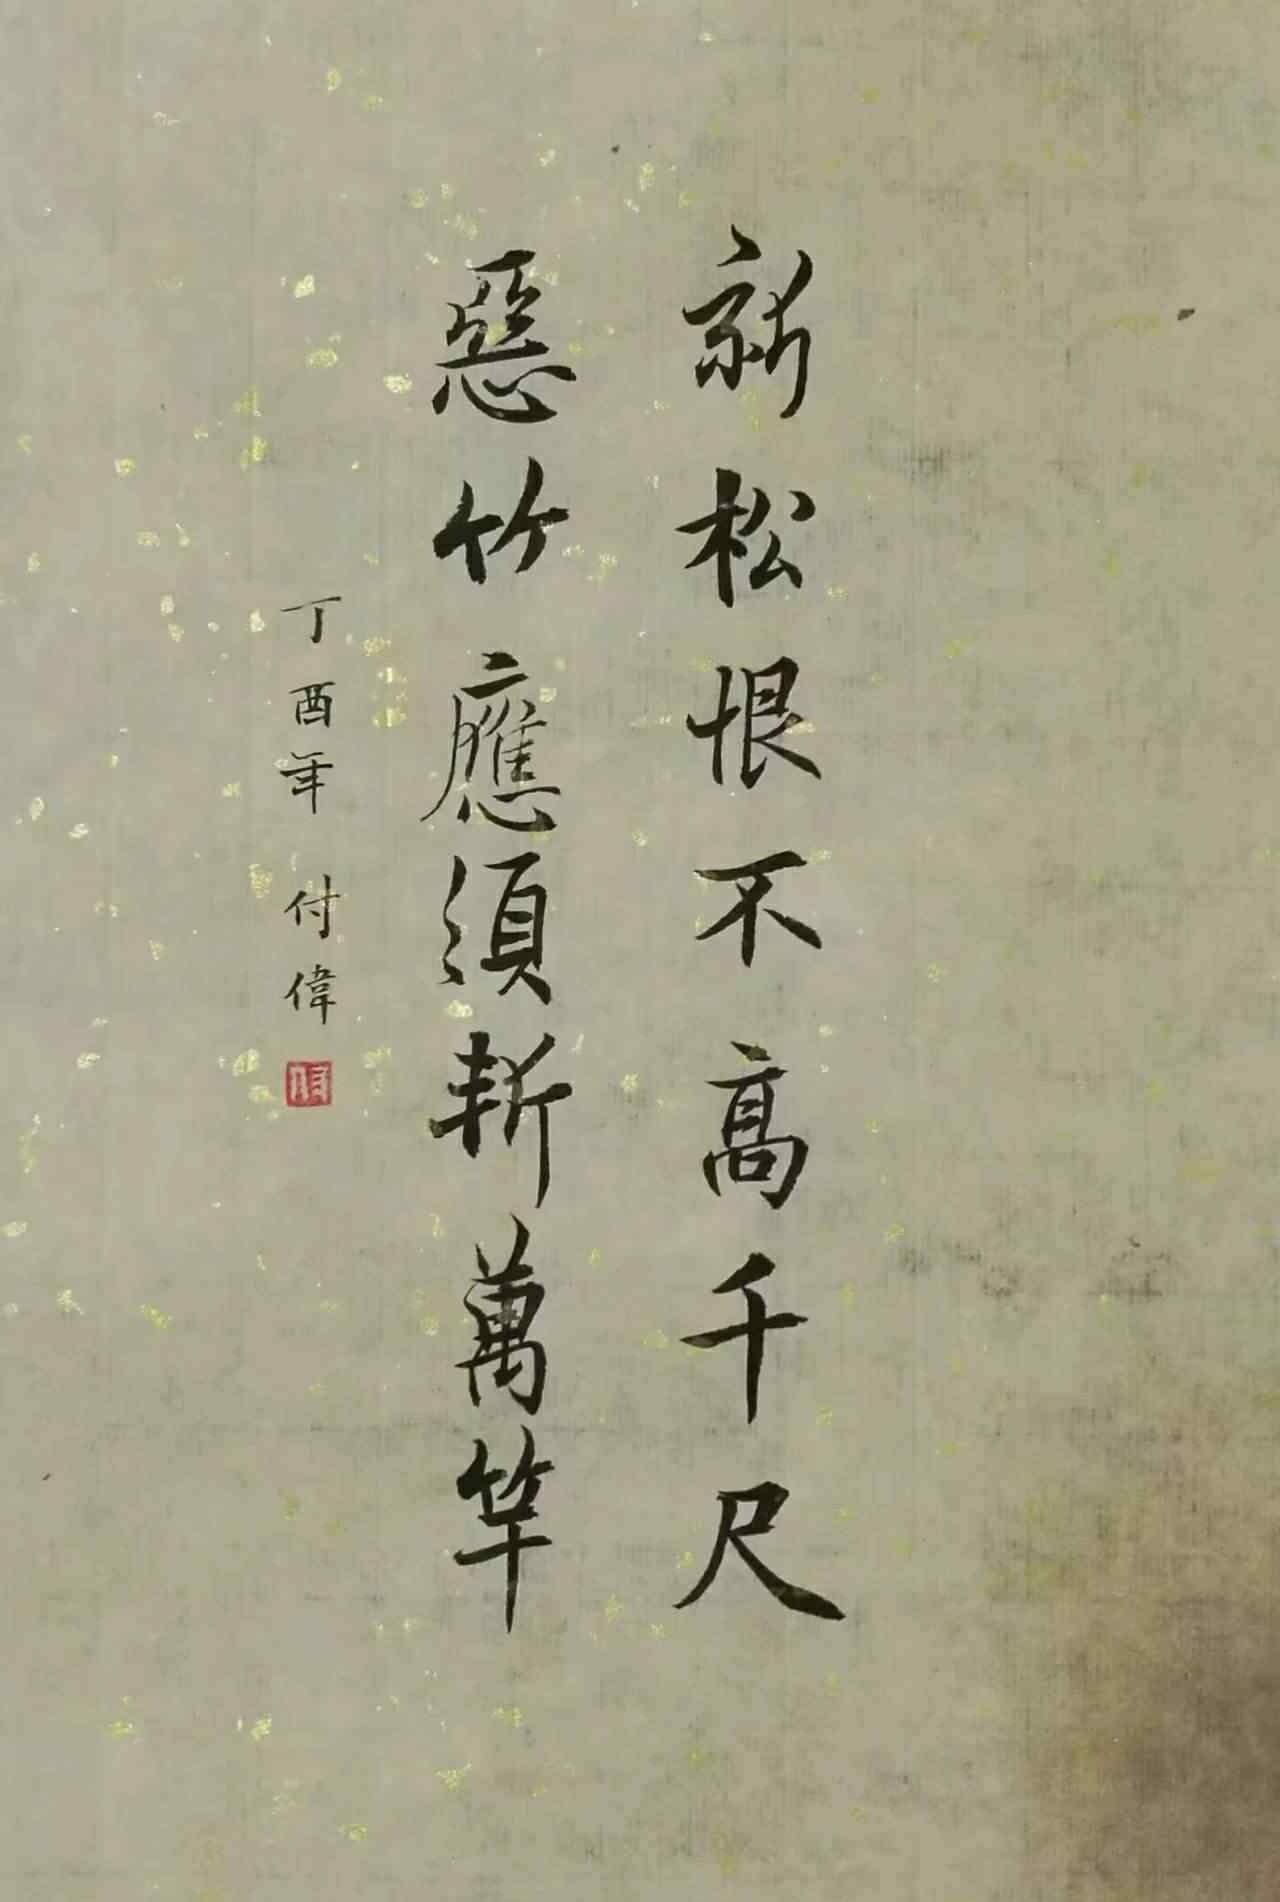 新松恨不高千尺
惡竹應須斬萬竿
丁酉年 付偉